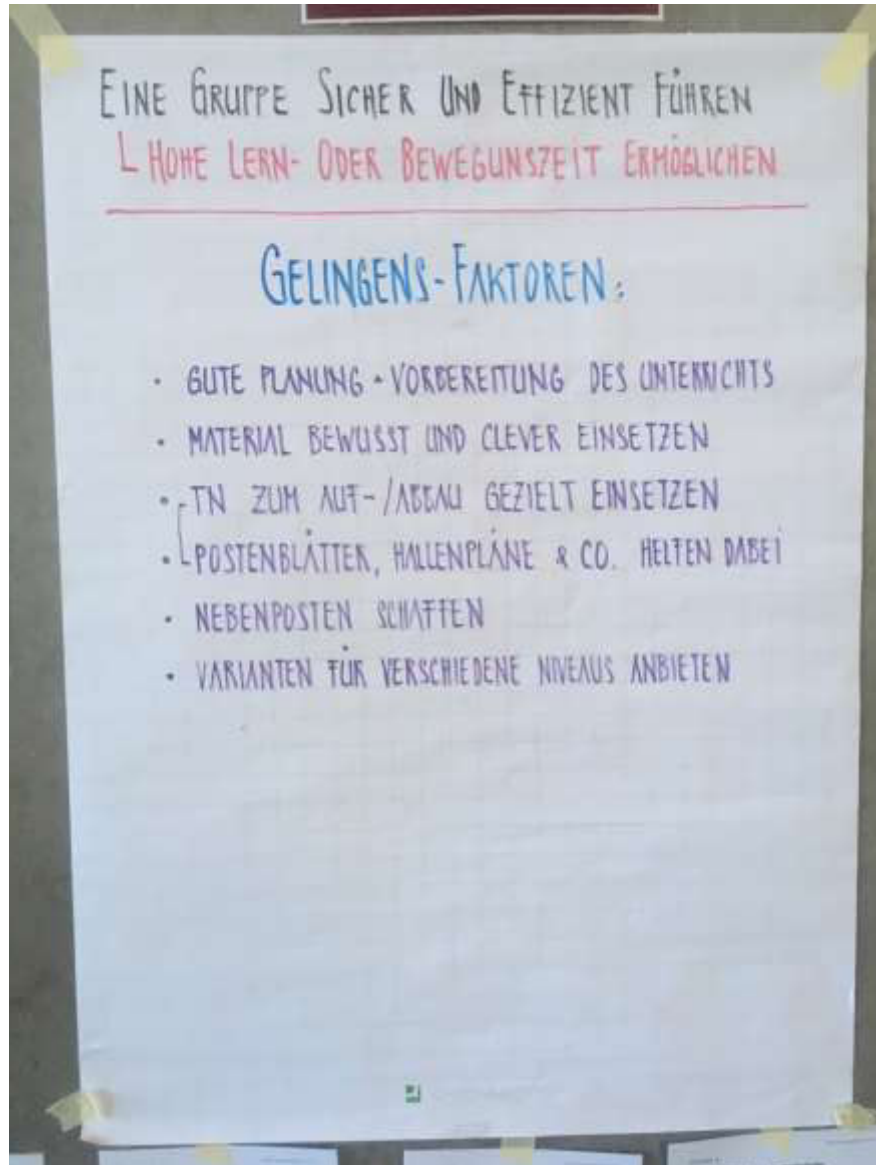 EINE GRUPPE SICHER UND EFFIZIENT FÜHREN
└ HOHE LERN- ODER BEWEGUNSZEIT ERMÖGLICHEN
GELINGENS-FAKTOREN:
· GUTE PLANUNG + VORBEREITUNG DES UNTERRICHTS
· MATERIAL BEWUSST UND CLEVER EINSETZEN
· TN ZUM AUF-/ABBAU GEZIELT EINSETZEN
· POSTENBLÄTTER, HALLENPLÄNE & CO. HELFEN DABEI
· NEBENPOSTEN SCHAFFEN
· VARIANTEN FÜR VERSCHIEDENE NIVEAUS ANBIETEN